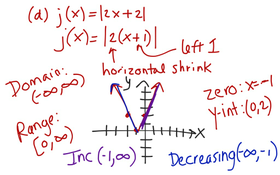 (d) j(x) = |2x+2|
j(x) = |2(x+1)|
left 1
horizontal shrink
Domain:
(-∞,∞)
Range:
[0,∞)
y
x
zero: x=-1
y-int: (0,2)
Inc (-1,∞)
Decreasing (-∞,-1)